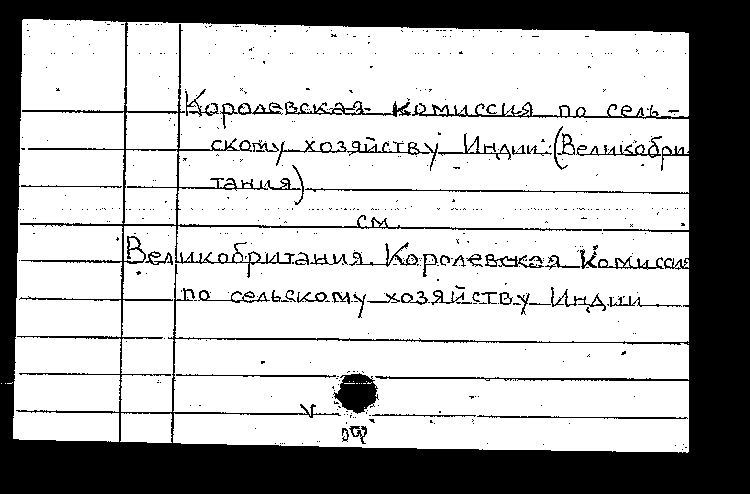 Королевская комиссия по сель-
скому хозяйству Индии (Великобри
тания)
см.
Великобритания. Королевская Комиссия
по сельскому хозяйству Индии.
V